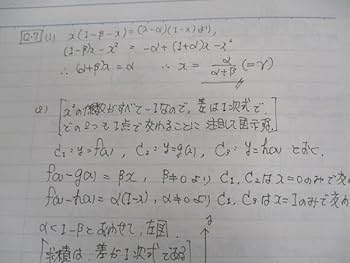 12.7 (1) x(1-β-x)=(x-α)(1-x)より,
(1-β)x-x²=-α+(1+α)x-x²
∴(α+β)x=α ∴ x=α/(α+β) (=γ)
(2) [x²の係数がすべて-1なので,差は1次式で
どの2つも1点で交わることに注目して図示
C₁:y=f(x), C₂:y=g(x), C₃:y=h(x)とおく.
f(x)-g(x)=βx, β≠0よりC₁,C₂はx=0のみで交
f(x)-h(x)=α(1-x), α≠0よりC₁,C₃はx=1のみで交
α<1-βとあわせて,左図.
[面積は,差が1次式である
y